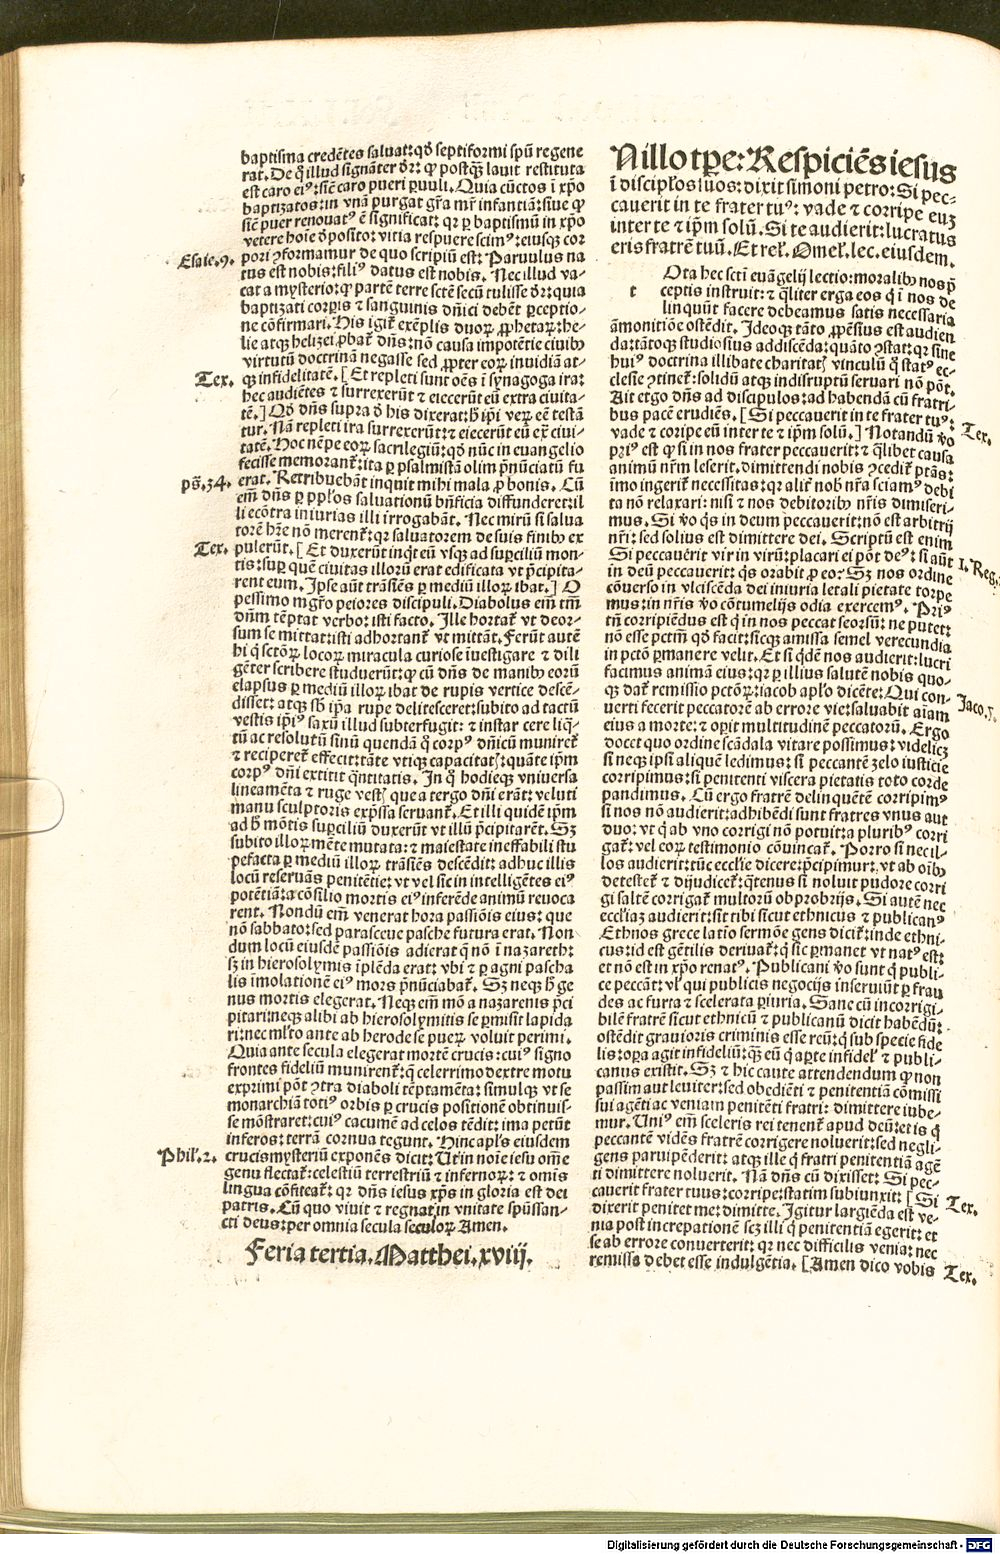 baptisma credētes saluat: qđ septiformi spū regene
rat. De q̄ illud signāter dr̄: ꝙ postq̄ lauit restituta
est caro eiꝰ: sic̄ caro pueri ꝑuuli. Quia cūctos ī xp̄o
baptizatos: in vnā purgat gr̄a mr̄ infantiā: siue ꝙ
sic̄ puer renouatꝰ ē significat: qꝛ ꝑ baptismū in xp̄o
vetere hoīe deposito: vitia respuere scimꝰ: eiusqꝫ cor
Esaie.9. pori ꝯformamur de quo scriptū est: Paruulus na
tus est nobis: filiꝰ datus est nobis. Nec illud va-
cat a mysterio: ꝙ partē terre sctē secū tulisse dr̄: quia
baptizati corꝑis ⁊ sanguinis dñici debēt ꝑceptio-
ne cōfirmari. His igit̄ exēplis duoꝝ ꝓphetaꝝ: he-
lie atqꝫ helizei ꝓbat dn̄s: nō causa impotētie ciuibꝰ
virtutū doctrinā negasse sed ꝓpter eoꝝ inuidiā at-
Tex. qꝫ infidelitatē. [Et repleti sunt oēs ī synagoga ira:
hec audiētes ⁊ surrexerūt ⁊ eiecerūt eū extra ciuita-
tē.] Qđ dn̄s supra đ his dixerat: ꝙ ip̄i veꝝ eē testā
tur. Nā repleti ira surrexerūt: ⁊ eiecerūt eū ex̄ ciui-
tatē. Hoc nēpe eoꝝ sacrilegiū: qđ nūc in euangelio
fecisse memorant̄: ita ꝑ psalmistā olim p̄nūciatū fu
ps̄.34. erat. Retribuebāt inquit mihi mala ꝓ bonis. Cū
em̄ dn̄s ꝑ pp̄los saluationū bn̄ficia diffunderet: il
li ecōtra iniurias illi irrogabāt. Nec mirū si salua
torē hr̄e nō merent̄: qꝛ saluatorem de suis finibꝰ ex
Tex. pulerūt. [Et duxerūt inqt eū vsqꝫ ad suꝑciliū mon-
tis: suꝑ quē ciuitas illoꝝ erat edificata vt p̄cipita-
rent eum. Ipse aūt trāsiēs ꝑ mediū illoꝝ ibat.] O
pessimo mgr̄o peiores discipuli. Diabolus em̄ tm̄
dn̄m tēptat verbo: isti facto. Ille hortat̄ vt deor-
sum se mittat: isti adhortant̄ vt mittāt. Ferūt autē
hi q̄ sctōꝝ locoꝝ miracula curiose īuestigare ⁊ dili
gēter scribere studuerūt: ꝙ cū dn̄s de manibꝰ eorū
elapsus ꝑ mediū illoꝝ ibat de rupis vertice descē-
disset: atqꝫ sb̄ ip̄a rupe delitesceret: subito ad tactū
vestis ip̄iꝰ saxū illud subterfugit: ⁊ instar cere liq̄-
tū ac resolutū sinū quendā q̄ corpꝰ dn̄icū muniret̄
⁊ reciperet̄ effecit: tāte vtiqꝫ capacitatꝭ: quāte ip̄m
corpꝰ dn̄i extitit q̄ntitatis. In q̄ hodieqꝫ vniuersa
lineamēta ⁊ ruge vestꝭ que a tergo dn̄i erāt: veluti
manu sculptoris exp̄ssa seruant̄. Et illi quidē ip̄m
ad ꝙ mōtis suꝑciliū duxerūt vt illū p̄cipitarēt. Sꝫ
subito illoꝝ mēte mutata: ⁊ maiestate ineffabili stu
pefacta ꝑ mediū illoꝝ trāsiēs descēdit: adhuc illis
locū reseruās penitētie: vt vel sic in intelligētes eiꝰ
potētiā: a cōsilio mortis eiꝰ inferēde animū reuoca
rent. Nondū em̄ venerat hora passiōis eius: que
nō sabbato: sed parasceue pasche futura erat. Non
dum locū eiusdē passiōis adierat q̄ nō ī nazareth:
sꝫ in hierosolymis īplēda erat: vbi ⁊ ꝑ agni pascha
lis īmolationē eiꝰ mors p̄nūciabat̄. Sꝫ neqꝫ ꝙ ge
nus mortis elegerat. Neqꝫ em̄ mō a nazarenis p̄ci
pitari: neqꝫ alibi ab hierosolymitis se ꝑmisit lapida
ri: nec ml̄to ante ab herode se pueꝝ voluit perimi.
Quia ante secula elegerat mortē crucis: cuiꝰ signo
frontes fideliū munirent̄: q̄ celerrimo dextre motu
exprimi pōt ꝯtra diaboli tēptamēta: simulqꝫ vt se
monarchiā totiꝰ orbis ꝑ crucis positionē obtinuis-
se mōstraret: cuiꝰ cacumē ad celos tēdit: ima petūt
inferos: terrā cornua tegunt. Hinc apl̄s eiusdem
Phil̄.2. crucis mysteriū exponēs dicit: Ut in noīe iesu om̄e
genu flectat̄: celestiū terrestriū ⁊ infernoꝝ: ⁊ omis
lingua cōfiteat̄: qꝛ dn̄s iesus xp̄s in gloria est dei
patris. Cū quo viuit ⁊ regnat in vnitate spūssan-
cti deus: per omnia secula seculoꝝ Amen.
Feria tertia. Matthei. xviij.
Nillo tꝑe: Respiciēs iesus
ī discipl̄os suos: dixit simoni petro: Si pec-
cauerit in te frater tuꝰ: vade ⁊ corripe euꝫ
inter te ⁊ ip̄m solū. Si te audierit: lucratus
eris fratrē tuū. Et rel̄. Omel̄. lec. eiusdem.
t Ota hec sctī euāgelij lectio: moralibꝰ nos p̄
ceptis instruit: ⁊ q̄liter erga eos q̄ ī nos de
linquūt facere debeamus satis necessaria
āmonitiōe ostēdit. Ideoqꝫ tāto ꝓpēsius est audien
da: tātoqꝫ studiosius addiscēda: quāto ꝯstat: qꝛ sine
huiꝰ doctrina illibate charitatꝭ vinculū q̄ statꝰ ec-
clesie ꝯtinet̄: solidū atqꝫ indisruptū seruari nō pōt.
Ait ergo dn̄s ad discipulos: ad habendā cū fratri-
bus pacē erudiēs. [Si peccauerit in te frater tuꝰ: Tex.
vade ⁊ corripe eū inter te ⁊ ip̄m solū.] Notandū v̄o
pꝛiꝰ est ꝙ si in nos frater peccauerit: ⁊ q̄libet causa
animū nr̄m leserit. dimittendi nobis ꝯcedit̄ ptās:
īmo ingerit̄ necessitas: qꝛ alit̄ nob̄ nr̄a sciamꝰ debi
ta nō relaxari: nisi ⁊ nos debitoribꝰ nr̄is dimiseri-
mus. Si v̄o q̄s in deum peccauerit: nō est arbitrij
nr̄i: sed solius est dimittere dei. Scriptū est enim
Si peccauerit vir in virū: placari ei pōt deꝰ: si aūt 1. Reg.
in deū peccauerit: q̄s orabit ꝓ eo? Sꝫ nos ordine
cōuerso in vlciscēda dei iniuria letali pietate torpe
mus: in nr̄is v̄o cōtumelijs odia exercemꝰ. Pꝛiꝰ
tn̄ corripiēdus est q̄ in nos peccat seorsū: ne putet:
nō esse pctm̄ qđ facit: sicqꝫ amissa semel verecundia
in pctō ꝑmanere velit. Et si q̄dē nos audierit: lucri
facimus animā eius: qꝛ ꝑ illius salutē nobis quo-
qꝫ dat̄ remissio pctōꝝ: iacob apl̄o dicēte: Qui con-
uerti fecerit peccatorē ab errore vie: saluabit aīam Jaco.5.
eius a morte: ⁊ oꝑit multitudinē peccatorū. Ergo
docet quo ordine scādala vitare possimus: videlicꝫ
si neqꝫ ipsi aliquē ledimus: si peccantē zelo iusticie
corripimus: si penitenti viscera pietatis toto corde
pandimus. Cū ergo fratrē delinquētē corripimꝰ
si nos nō audierit: adhibēdi sunt fratres vnus aut
duo: vt q̄ ab vno corrigi nō potuit: a pluribꝰ corri
gat̄: vel coꝝ testimonio cōuincat̄. Porro si nec il-
los audierit: tūc eccl̄ie dicere: p̄cipimur: vt ab oībꝰ
detestet̄ ⁊ dijudicet̄: q̄tenus si noluit pudore corri
gi saltē corrigat̄ multorū obprobrijs. Si autē nec
eccl̄iaꝫ audierit: sit tibi sicut ethnicus ⁊ publicanꝰ
Ethnos grece latīo sermōe gens dicit̄: inde ethni-
cus: id est gētilis deriuat̄: q̄ sic ꝑmanet vt natꝰ est:
et nō est in xp̄o renatꝰ. Publicani v̄o sunt q̄ publi-
ce peccāt: vl̄ qui publicis negocijs inseruiūt ꝑ frau
des ac furta ⁊ scelerata ꝑiuria. Sane cū incorrigi-
bilē fratrē sicut ethnicū ⁊ publicanū dicit habēdū:
ostēdit grauioris criminis esse reū: q̄ sub specie fide
lis: oꝑa agit infideliū: q̄ eū q̄ aꝑte infidel̄ ⁊ publi-
canus existit. Sꝫ ⁊ hic caute attendendum ꝙ non
passim aut leuiter: sed obediēti ⁊ penitentiā cōmissi
sui agēti ac veniam penitēti fratri: dimittere iube-
mur. Uniꝰ em̄ sceleris rei tenent̄ apud deū: et is q̄
peccantē vidēs fratrē corrigere noluerit: sed negli-
gens paruipēderit: atqꝫ ille q̄ fratri penitentiā agē
ti dimittere noluerit. Nā dn̄s cū dixisset: Si pec-
cauerit frater tuus: corripe: statim subiunxit: [Si Tex.
dixerit penitet me: dimitte. Igitur largiēda est ve-
nia post increpationē scꝫ illi q̄ penitentiā egerit: et
se ab errore conuerterit: qꝛ nec difficilis venia: nec
remissa debet esse indulgētia. [Amen dico vobis Tex.
Digitalisierung gefördert durch die Deutsche Forschungsgemeinschaft - DFG